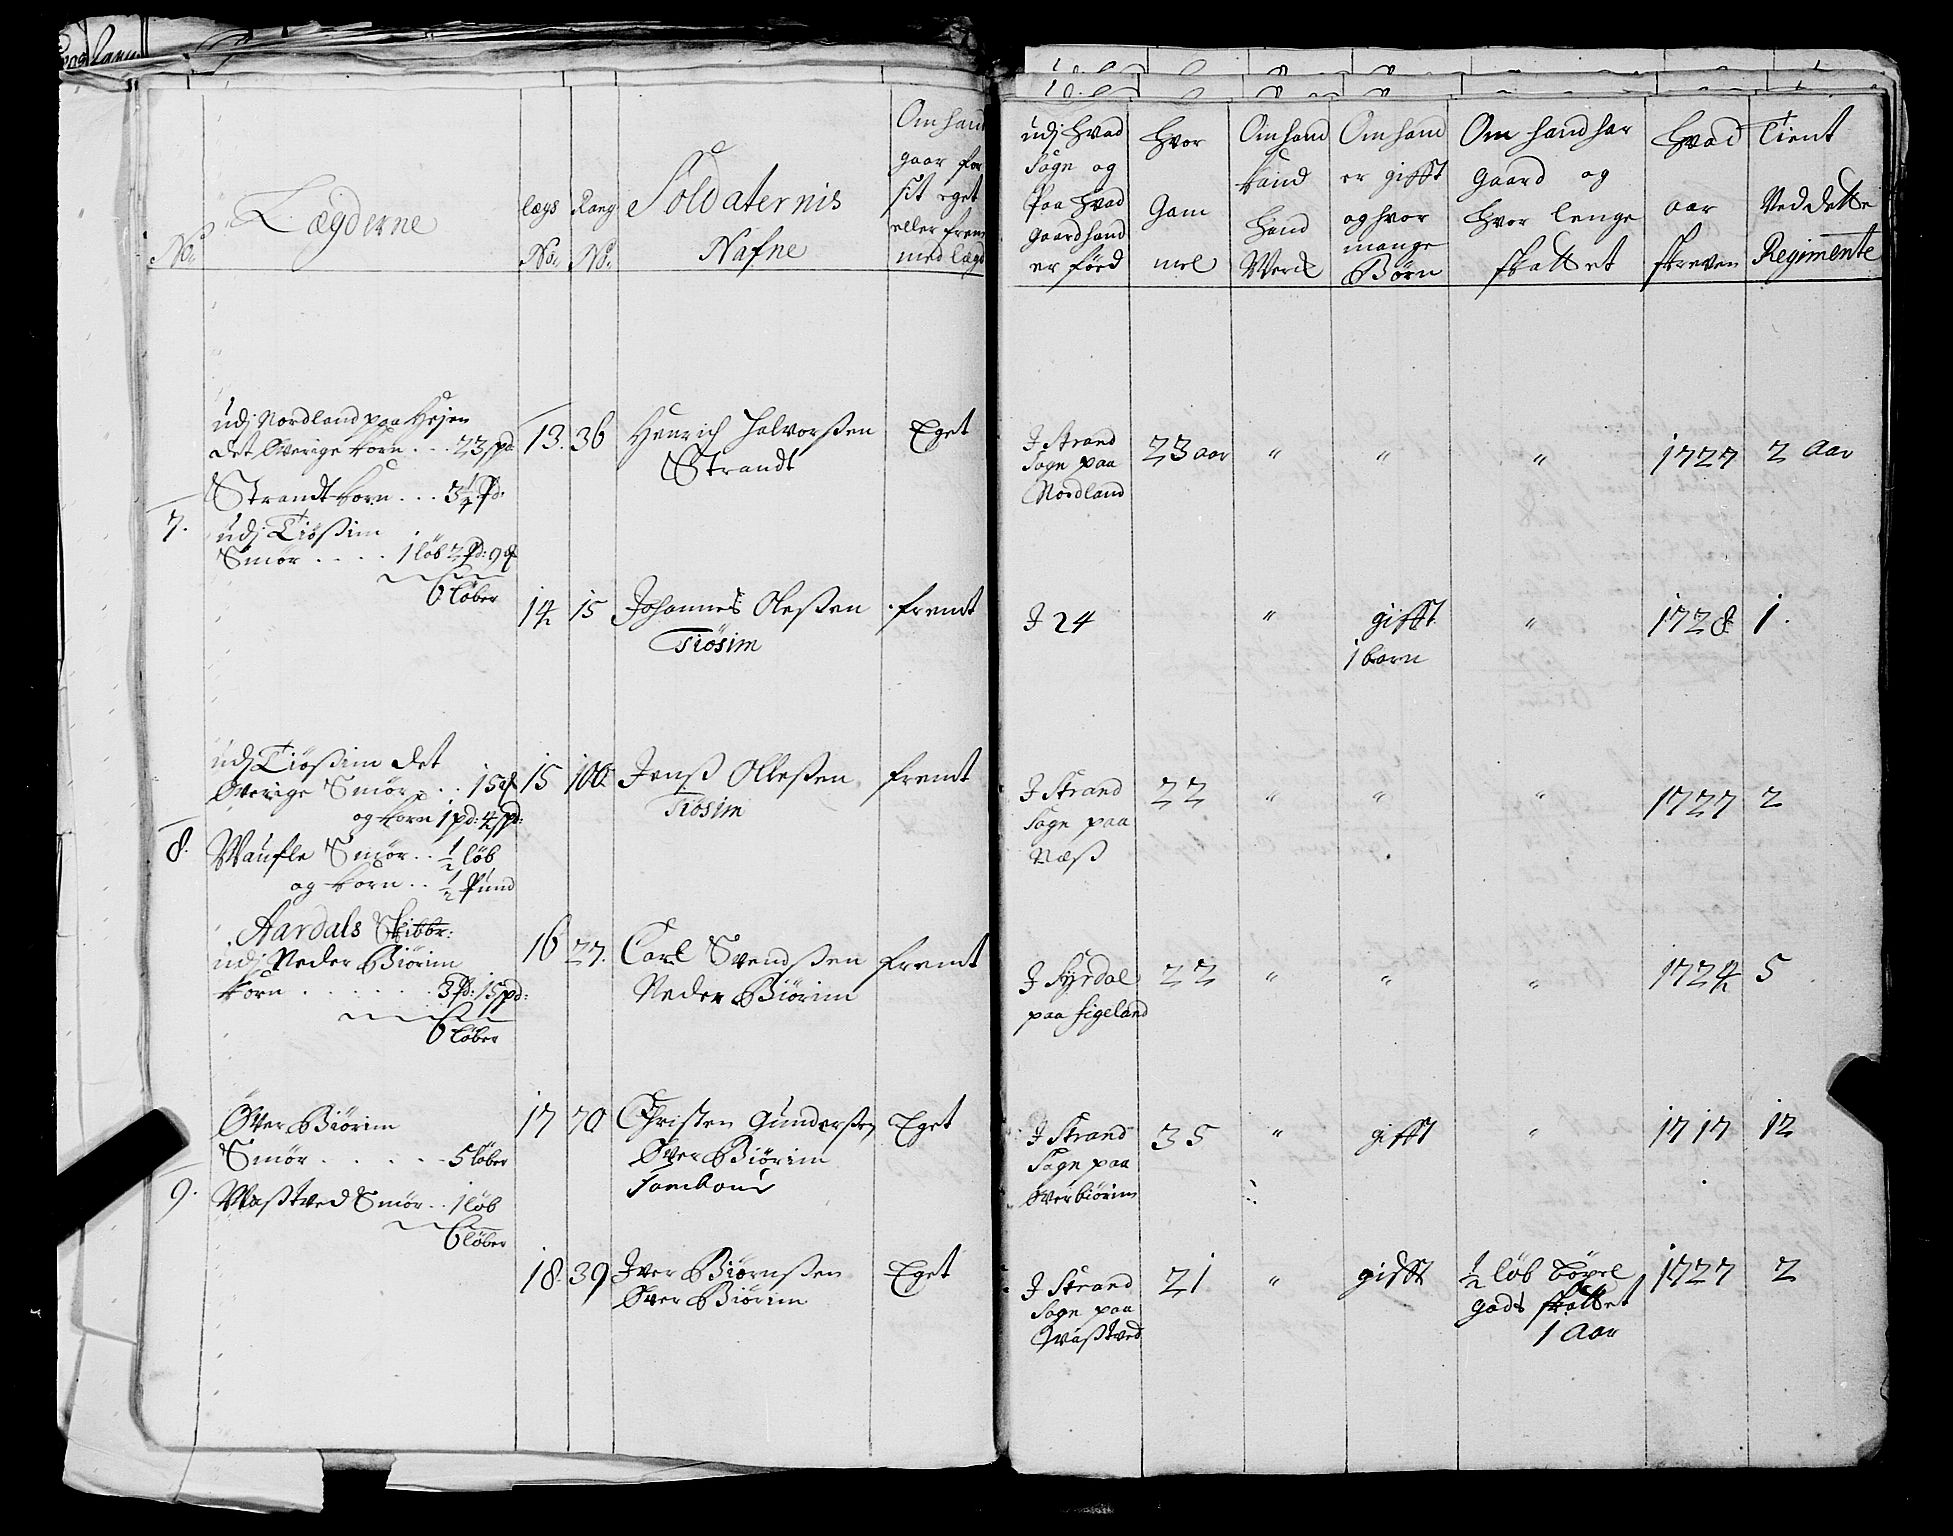 No:
Lægderne
lægs No:
Rang No:
Soldaternis
Nafne
Om hand
gaar for
sit eget
eller frem
med lægd
udj hvad
Sogn og
Paa hvad
gaard hand
er föed
Hvor
Gam
mel
Om hand
kand
Hand
Werck
Om hand
er gifft
og hvor
mange
Börn
Om hand har
Gaard og
Hvor lenge
skattet
Hvad
aar
skreven
Tient
Ved dette
Regimente
udj Nordland paa Hejen
det Överige korn . . . 23 spd
Strandt korn . . . 3½ Pd:
7.
udj Tiössim
Smör . . . . 1 löb 2 Pd: 9 ℔
6 löber
13. 36 Henrich Halvorssen
Strandt
Eget
J Strand
Sogn paa
Nordland
23 aar
"
"
"
1727
2 Aar
14 15 Johannes Olessen
Tiösim
fremt
J 24
"
gifft
1 barn
"
1728
1.
udj Tiössim det
Överige Smör . . 15 ℔
og korn 1 pd: 4 spd:
8.
Waufle Smör . . ½ löb
og korn . . ½ Pund
15 100 Jenss Ollessen
Tiosim
fremt
J Strand
Sogn paa
Næss
22
"
"
"
1727
2
Aardals Skibbr:
udj Neder Biörim
korn . . . . . . 3 Pd: 15 spd:
6 löber
16 27. Carl Svendssen
Neder Biörim
fremt
J Syrdal
paa figeland
22
"
"
"
1724
5
Över Biörim
Smör . . . . . 5 löber
9.
Wasstved Smör . . 1 löb
6 löber
17 70 Christen Gunderssen
Över Biörim
Tambour
Eget
J Strand
Sogn paa
Överbiörim
35
"
gifft
"
1717
12
18. 39 Iver Biörnssen
Över Biörim
Eget
J Strand
Sogn paa
Qvasstved
21
"
gifft
½ löb böxel
gods skattet
1 Aar
1727
2